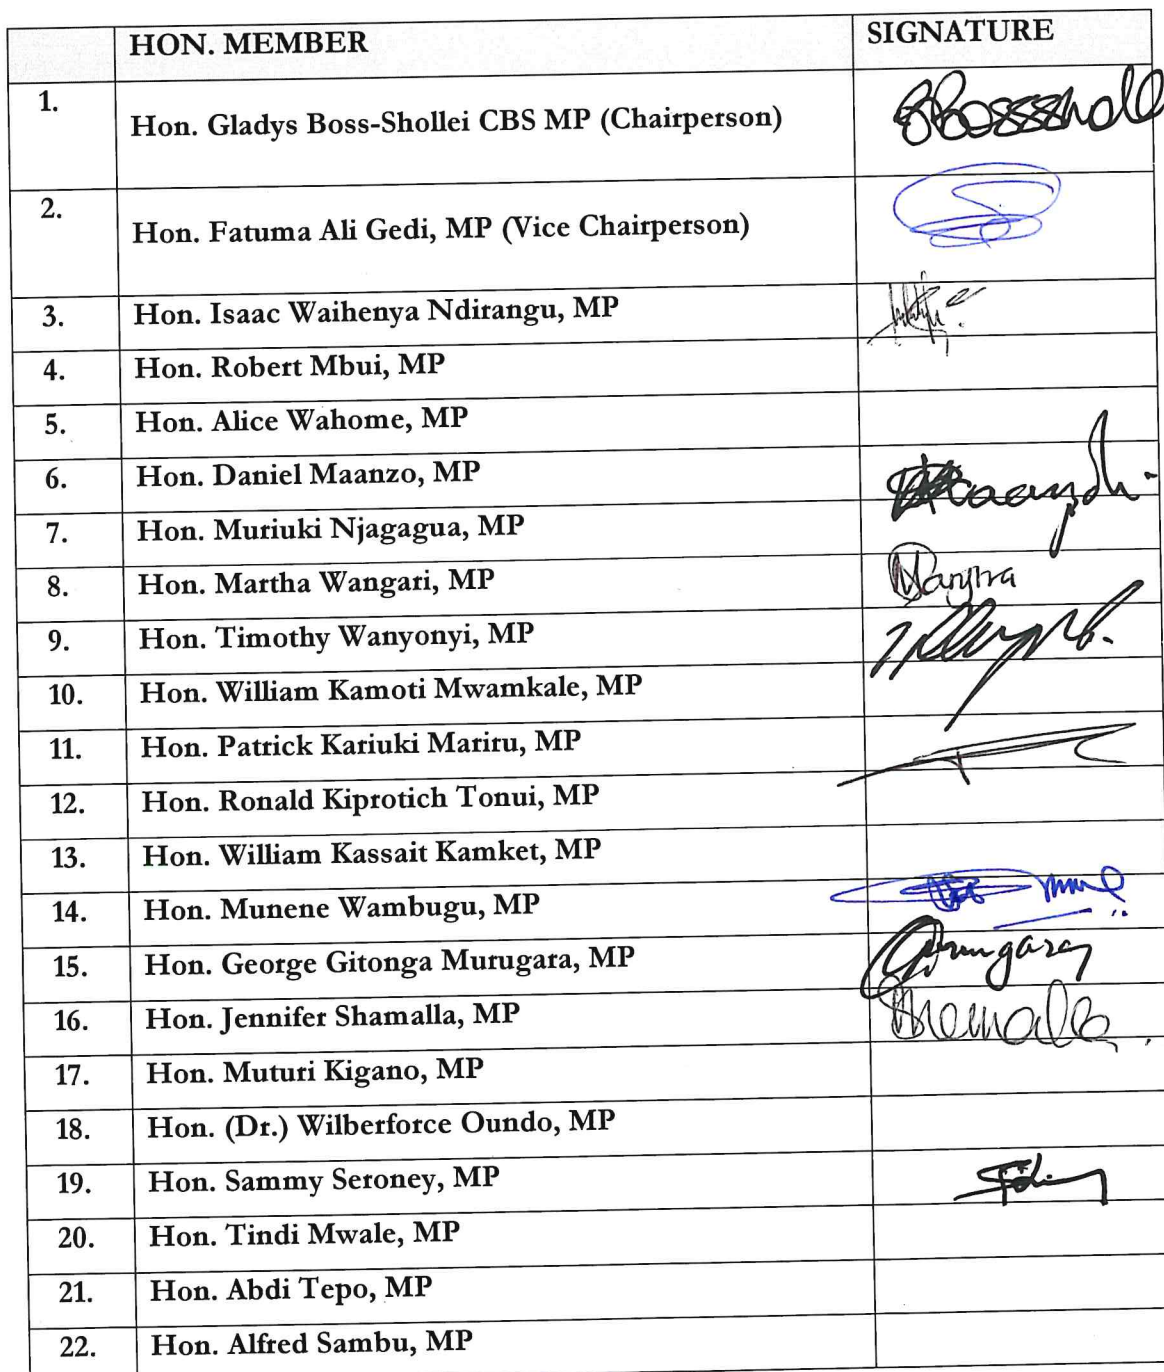 HON. MEMBER SIGNATURE
1. Hon. Gladys Boss-Shollei CBS MP (Chairperson)
2. Hon. Fatuma Ali Gedi, MP (Vice Chairperson)
3. Hon. Isaac Waihenya Ndirangu, MP
4. Hon. Robert Mbui, MP
5. Hon. Alice Wahome, MP
6. Hon. Daniel Maanzo, MP
7. Hon. Muriuki Njagagua, MP
8. Hon. Martha Wangari, MP
9. Hon. Timothy Wanyonyi, MP
10. Hon. William Kamoti Mwamkale, MP
11. Hon. Patrick Kariuki Mariru, MP
12. Hon. Ronald Kiprotich Tonui, MP
13. Hon. William Kassait Kamket, MP
14. Hon. Munene Wambugu, MP
15. Hon. George Gitonga Murugara, MP
16. Hon. Jennifer Shamalla, MP
17. Hon. Muturi Kigano, MP
18. Hon. (Dr.) Wilberforce Oundo, MP
19. Hon. Sammy Seroney, MP
20. Hon. Tindi Mwale, MP
21. Hon. Abdi Tepo, MP
22. Hon. Alfred Sambu, MP